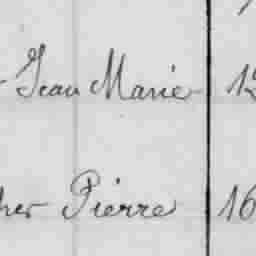 Jean Marie 12
her Pierre 16